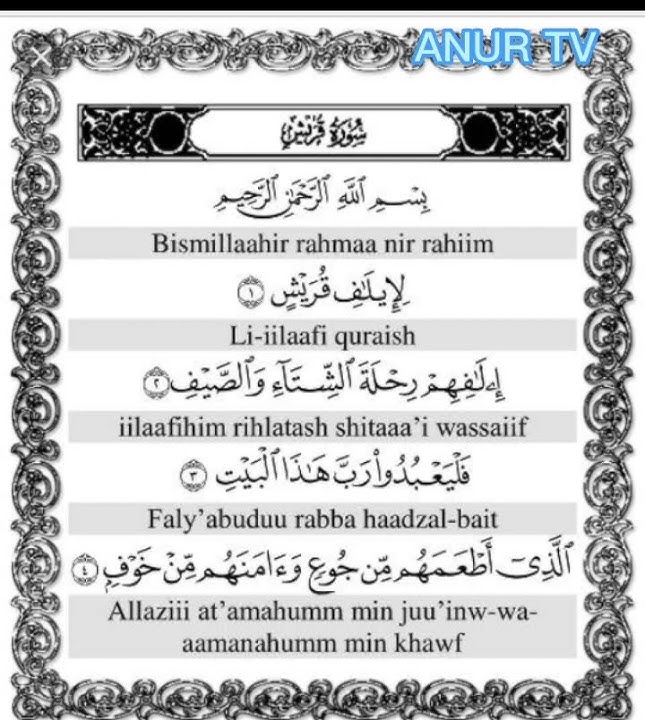 ANUR TV
سُورَةُ قُرَيْشٍ
بِسْمِ ٱللَّهِ ٱلرَّحْمَٰنِ ٱلرَّحِيمِ
Bismillaahir rahmaa nir rahiim
لِإِيلَٰفِ قُرَيْشٍ ١
Li-iilaafi quraish
إِۦلَٰفِهِمْ رِحْلَةَ ٱلشِّتَآءِ وَٱلصَّيْفِ ٢
iilaafihim rihlatash shitaaa’i wassaiif
فَلْيَعْبُدُوا۟ رَبَّ هَٰذَا ٱلْبَيْتِ ٣
Faly’abuduu rabba haadzal-bait
ٱلَّذِىٓ أَطْعَمَهُم مِّن جُوعٍ وَءَامَنَهُم مِّنْ خَوْفٍۭ ٤
Allaziii at’amahumm min juu’inw-wa-
aamanahumm min khawf